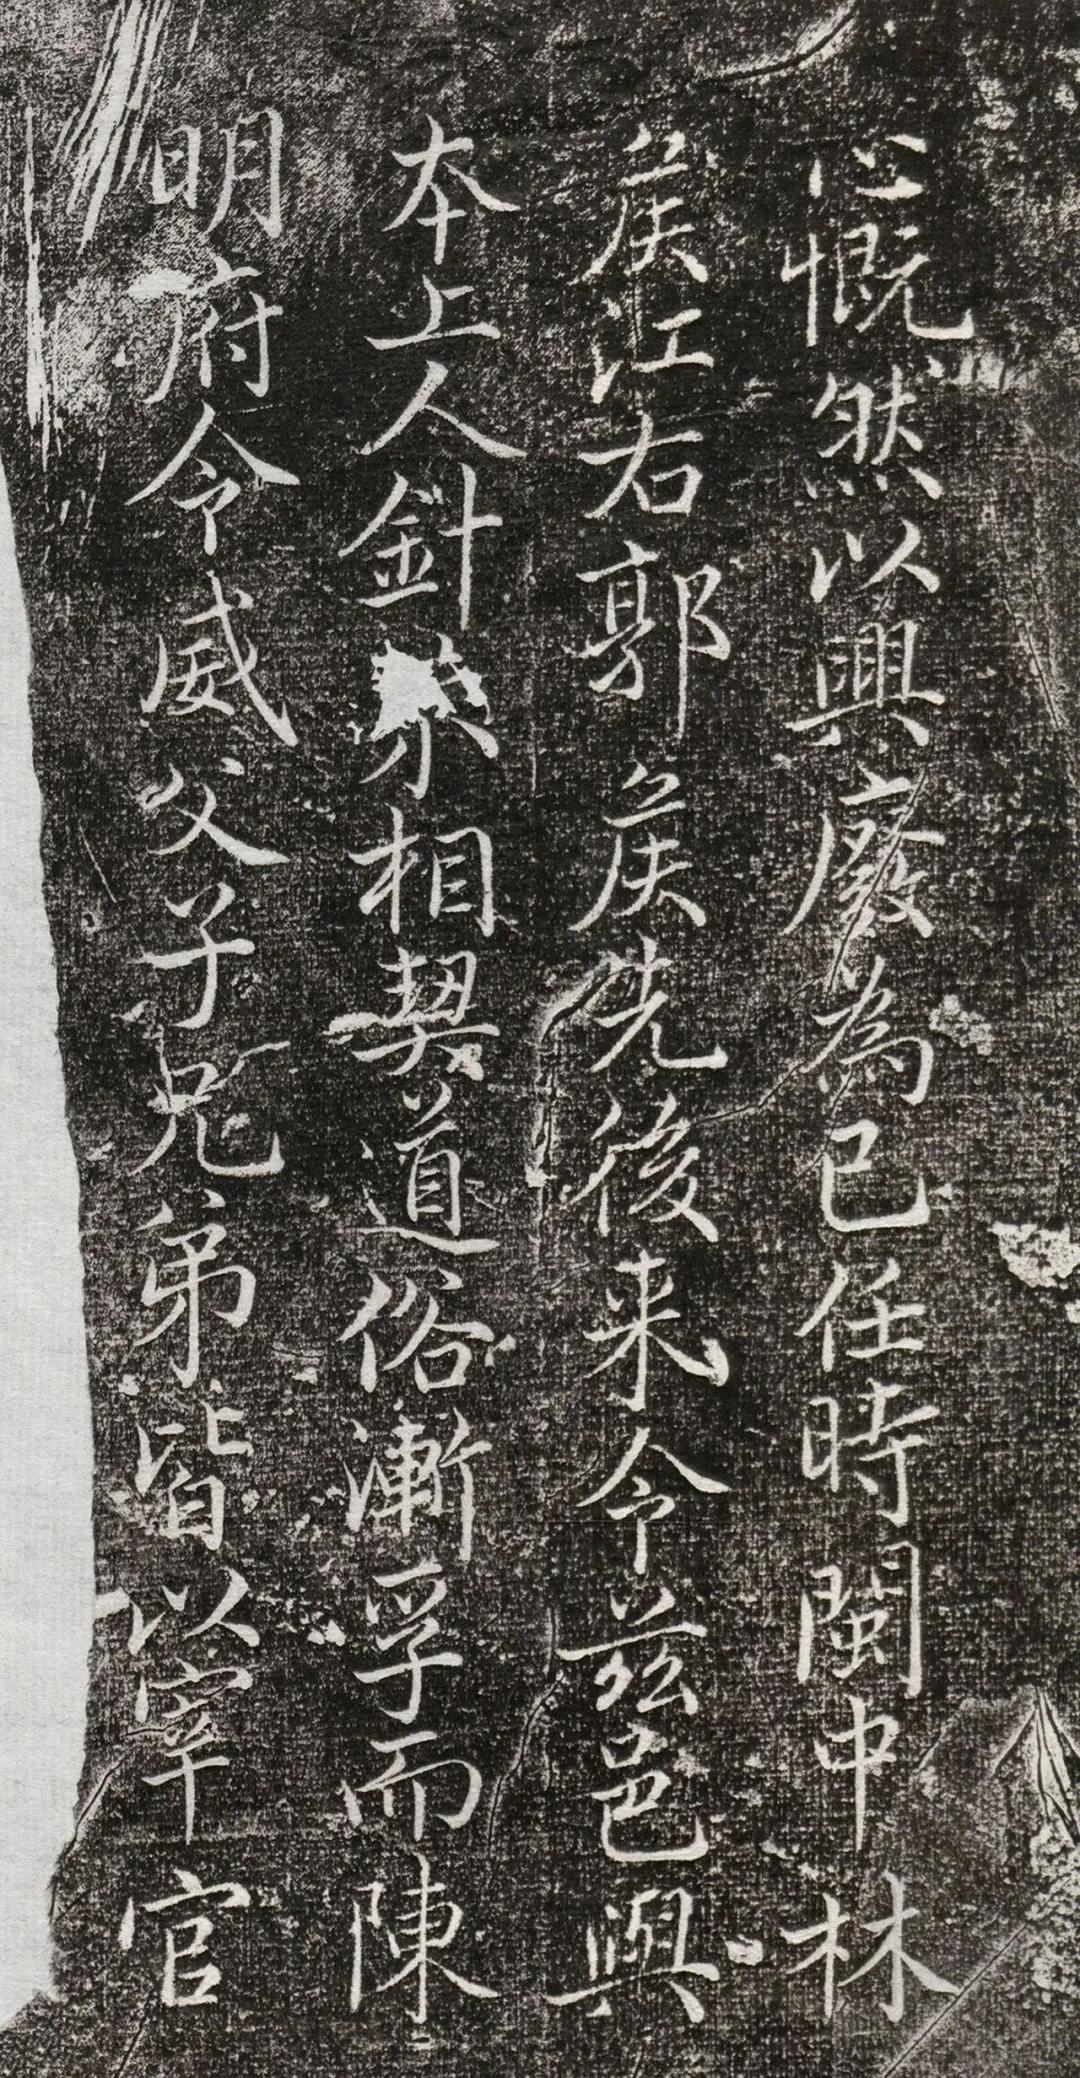 心慨然以興廢為己任時閩中林
矦江右郭矦先後来令茲邑與
本上人針芥相契道俗漸孚而陳
明府令威父子兄弟皆以宰官